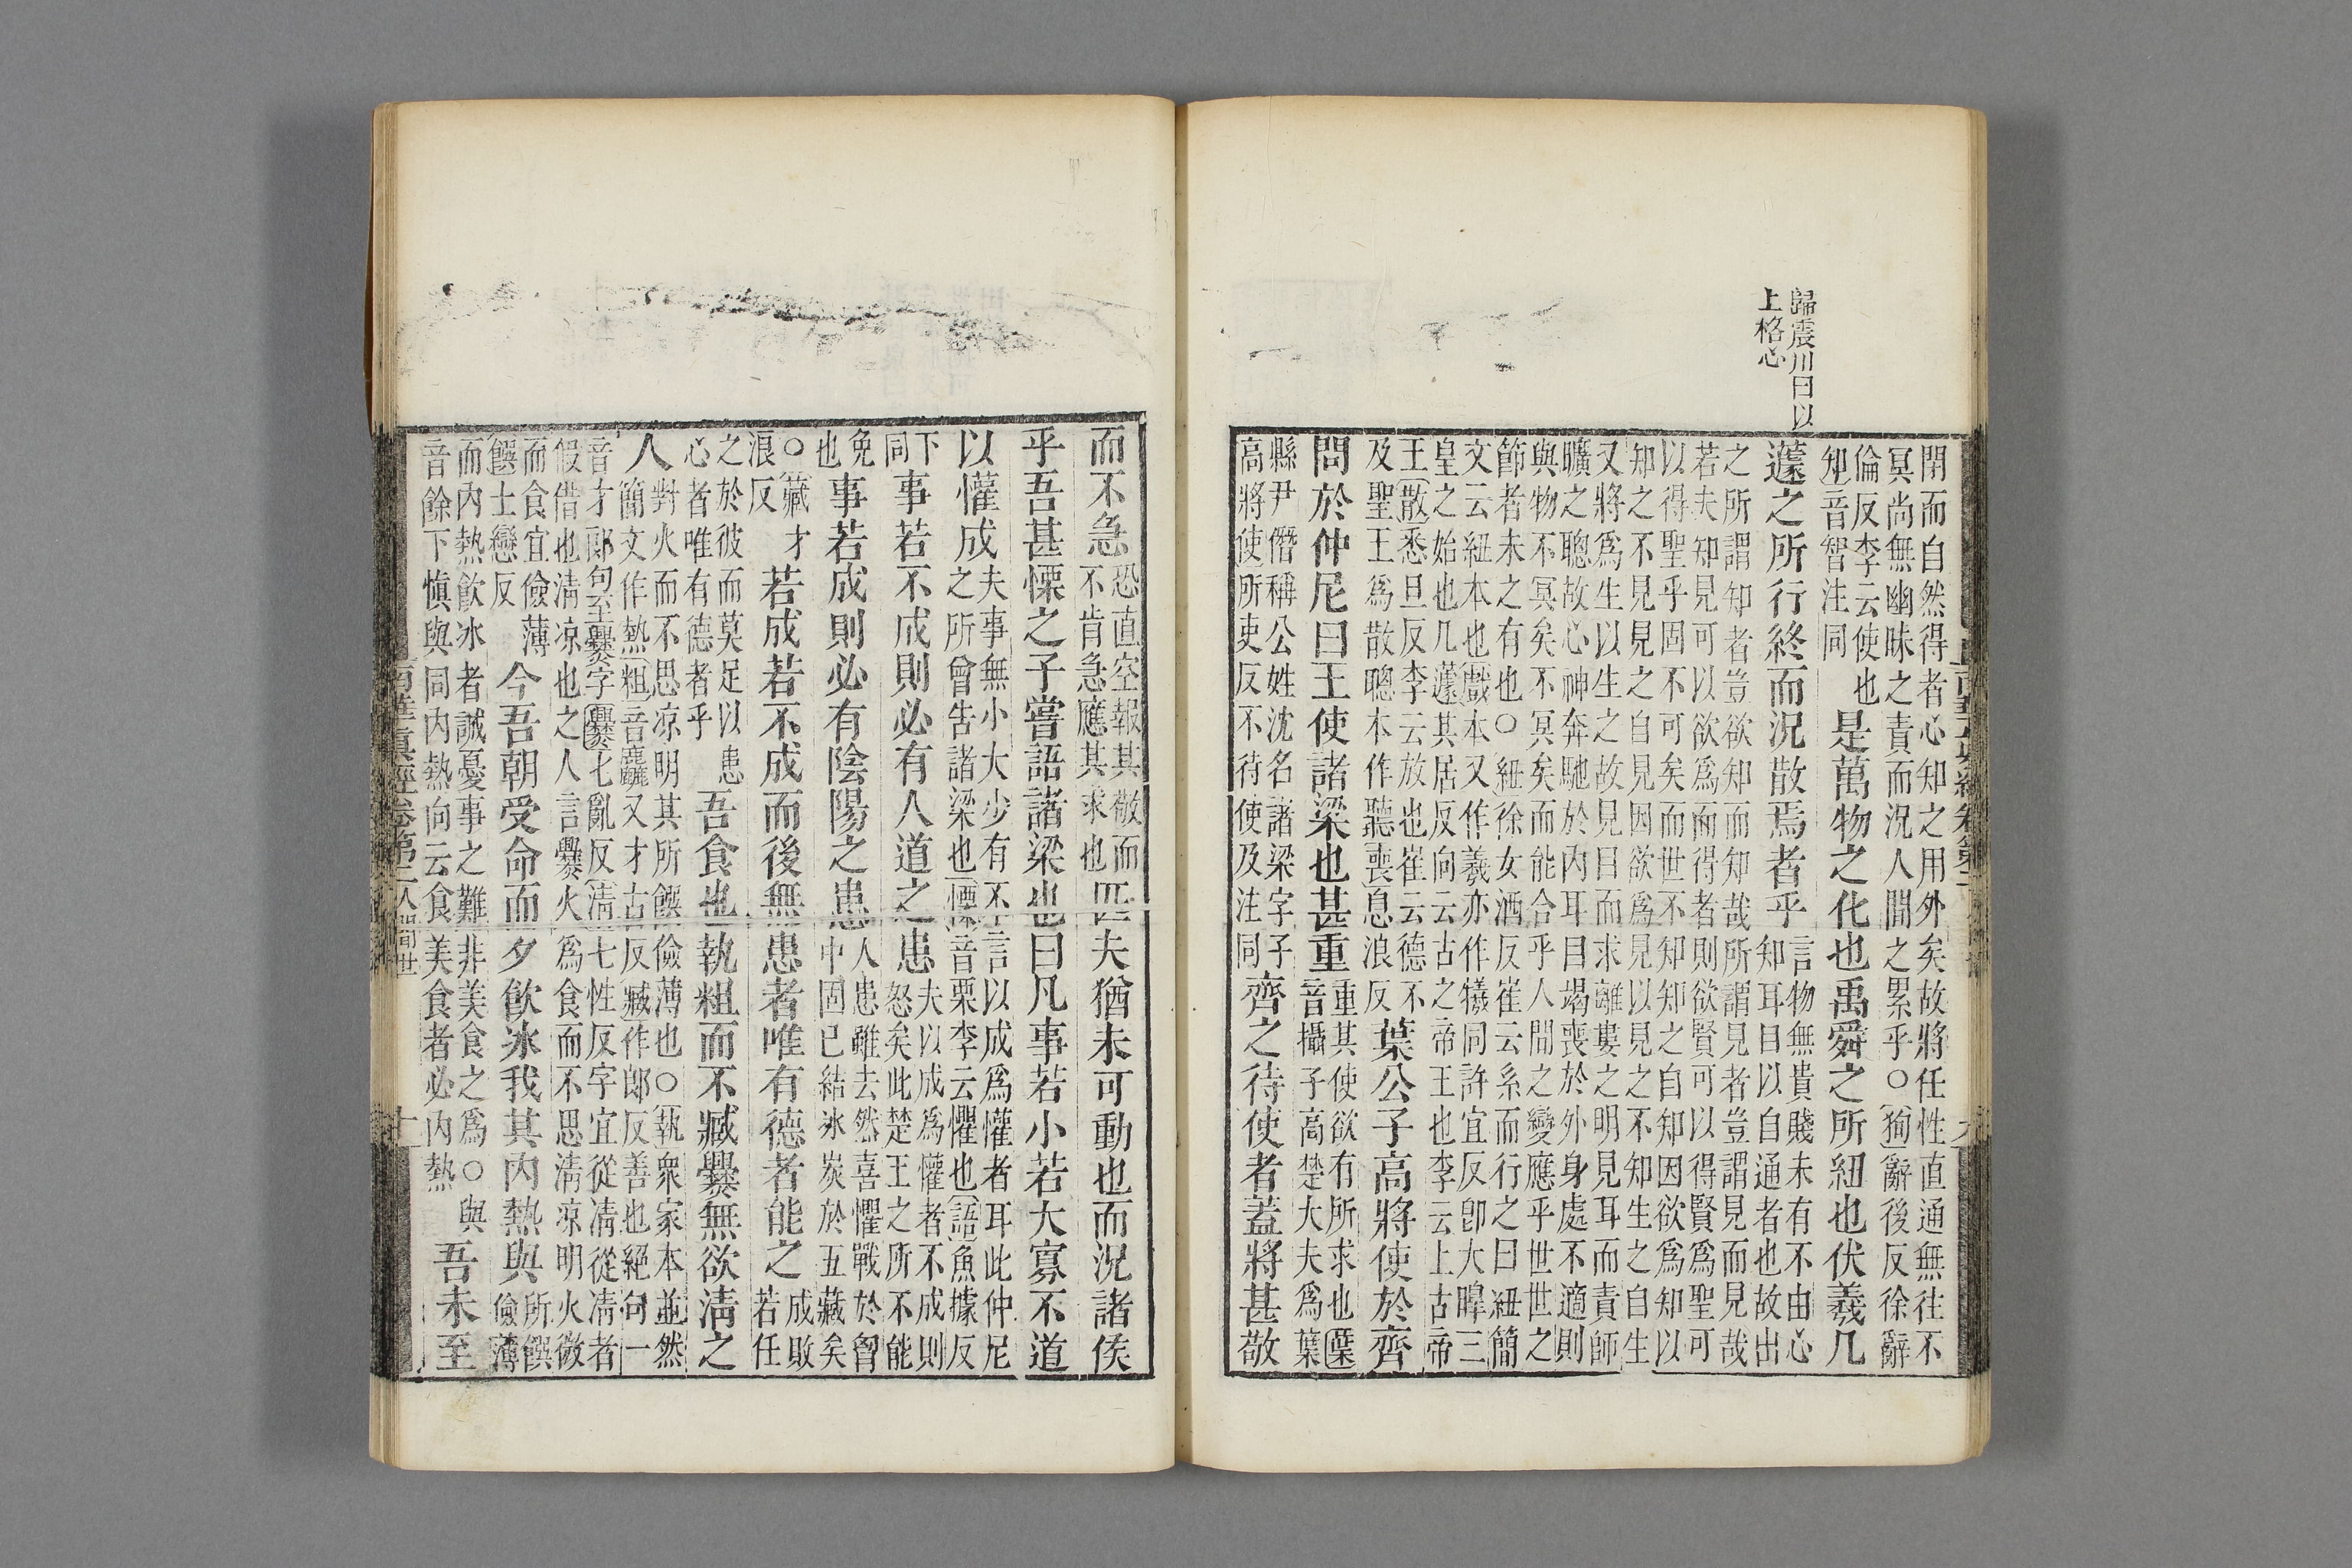 歸震川曰以
上格心
閒而自然得者心知之用外矣故將任性直通無往不
冥尚無幽昧之責而況人間之累乎○徇辭後反徐辭
倫反李云使也
知音智注同
是萬物之化也禹舜之所紐也伏羲几
蘧之所行終而況散焉者乎
言物無貴賤未有不由心
知耳目以自通者也故出
之所謂知者豈欲知而知哉所謂見者豈謂見而見哉
若夫知見可以欲爲而得者則欲賢可以得賢爲聖可
以得聖乎固不可矣而世不知知之自知因欲爲知以
知之不見見之自見因欲爲見以見之不知生之自生
又將爲生以生之故見目而求離婁之明見耳而責師
曠之聰故心神奔馳於內耳目竭喪於外身處不適則
與物不冥矣不冥矣而能合乎人間之變應乎世世之
節者未之有也○紐徐女酒反崔云系而行之曰紐簡
文云紐本也戲本又作羲亦作犧同許宜反卽大暤三
皇之始也几蘧其居反向云古之帝王也李云上古帝
王散悉旦反李云放也崔云德不
及聖王爲散聰本作聽喪息浪反
葉公子高將使於齊
問於仲尼曰王使諸梁也甚重
重其使欲有所求也葉
音攝子高楚大夫爲葉
縣尹僭稱公姓沈名諸梁字子
高將使所吏反不待使及注同
齊之待使者蓋將甚敬
而不急
恐直空報其敬而
不肯急應其求也
匹夫猶未可動也而況諸侯
乎吾甚慄之子嘗語諸梁也曰凡事若小若大寡不道
以懽成
夫事無小大少有不言以成爲懽者耳此仲尼
之所曾告諸梁也慄音栗李云懼也語魚據反
下同
事若不成則必有人道之患
夫以成爲懽者不成則
怒矣此楚王之所不能
免也
事若成則必有陰陽之患
人患雖去然喜懼戰於胷
中固已結冰炭於五藏矣
○藏才
浪反
若成若不成而後無患者唯有德者能之
成敗
若任
之於彼而莫足以患
心者唯有德者乎
吾食也執粗而不臧爨無欲淸之
人
對火而不思凉明其所饌儉薄也○執衆家本並然
簡文作熱粗音麤又才古反臧作郎反善也絕句一
音才郎句至爨字爨七亂反淸七性反字宜從凊從凊者
假借也淸凉也之人言爨火爲食而不思淸凉明火微
而食宜儉薄
饌士戀反
今吾朝受命而夕飮冰我其內熱與
所饌
儉薄
而內熱飮冰者誠憂事之難非美食之爲○與
音餘下愼與同內熱向云食美食者必內熱
吾未至
南華眞經卷第二人間世
十一